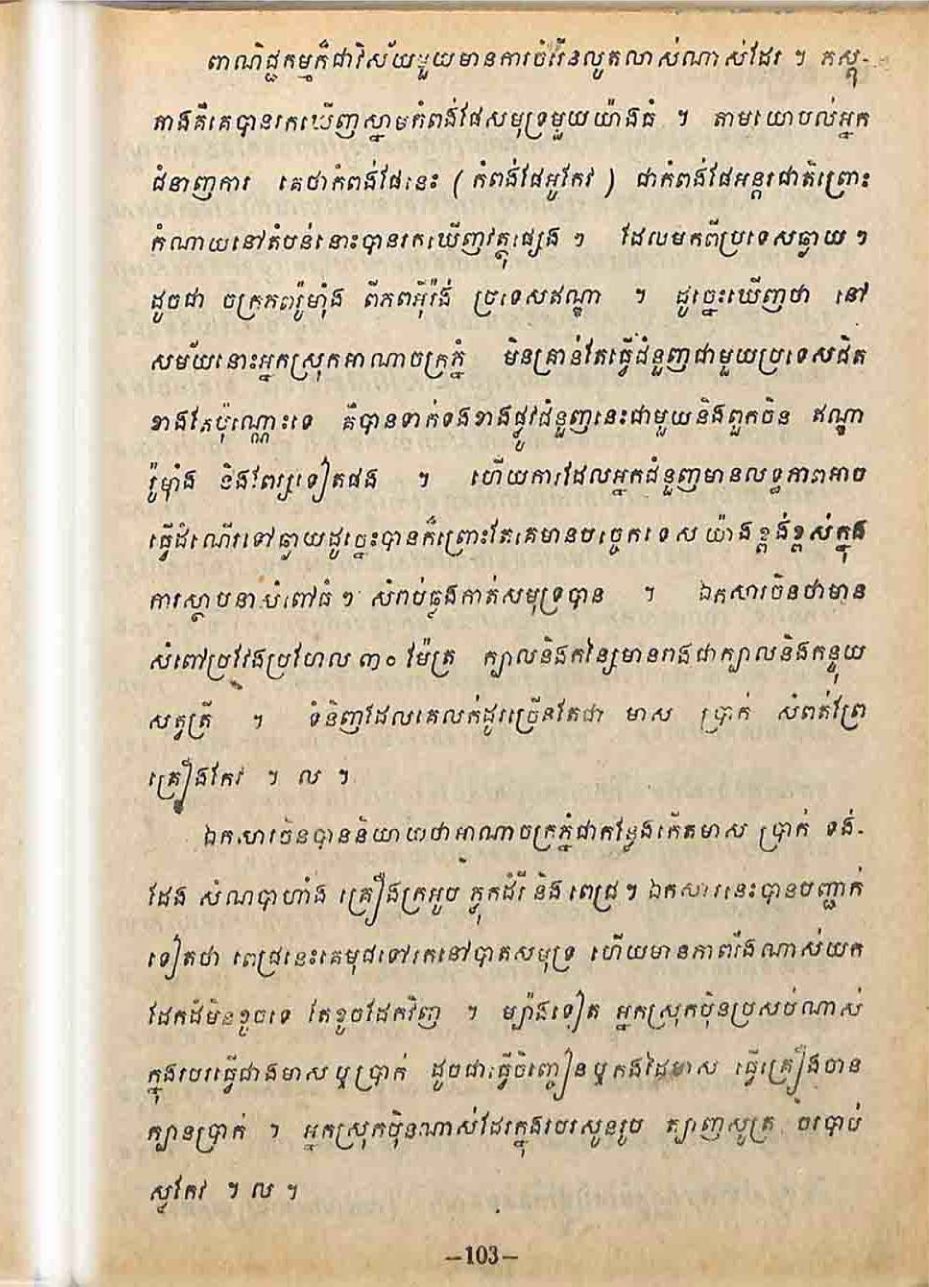 ពាណិជ្ជកម្មក៏ជាវិស័យមួយមានការចំរើនលូតលាស់ណាស់ដែរ ។ ភស្តុ-
តាងគឺគេបានរកឃើញស្នាមកំពង់ផែសមុទ្រមួយយ៉ាងធំ ។ តាមយោបល់អ្នក
ជំនាញការ គេថាកំពង់ផែនេះ ( កំពង់ផែអូរកែវ ) ជាកំពង់ផែអន្តរជាតិព្រោះ
កំណាយនៅតំបន់នោះបានរកឃើញវត្ថុផ្សេង ៗ ដែលមកពីប្រទេសឆ្ងាយ ៗ
ដូចជា ចក្រភពរ៉ូម៉ាំង ពីភពអ៊ីរ៉ង់ ប្រទេសឥណ្ឌា ។ ដូច្នេះឃើញថា នៅ
សម័យនោះអ្នកស្រុកអាណាចក្រភ្នំ មិនគ្រាន់តែធ្វើជំនួញជាមួយប្រទេសជិត
ខាងតែប៉ុណ្ណោះទេ គឺបានទាក់ទងខាងផ្លូវជំនួញនេះជាមួយនិងពួកចិន ឥណ្ឌា
រ៉ូម៉ាំង និងពែរ្សទៀតផង ។ ហើយការដែលអ្នកជំនួញមានលទ្ធភាពអាច
ធ្វើដំណើរទៅឆ្ងាយដូច្នេះបានក៏ព្រោះតែគេមានបច្ចេកទេសយ៉ាងខ្ពង់ខ្ពស់ក្នុង
ការស្ថាបនាសំពៅធំ ៗ សំរាប់ឆ្លងកាត់សមុទ្របាន ។ ឯកសារចិនថាមាន
សំពៅប្រវែងប្រហែល ៣០ ម៉ែត្រ ក្បាលនិងកន្សៃមានរាងជាក្បាលនិងកន្ទុយ
សត្វត្រី ។ ទំនិញដែលគេលក់ដូរច្រើនតែជា មាស ប្រាក់ សំពត់ព្រែ
គ្រឿងកែវ ។ ល ។
ឯកសារចិនបាននិយាយថាអាណាចក្រភ្នំជាកន្លែងកើតមាស ប្រាក់ ទង់-
ដែង សំណប៉ាហាំង គ្រឿងក្រអូប ភ្លុកដំរី និង ពេជ្រ ។ ឯកសារនេះបានបញ្ជាក់
ទៀតថា ពេជ្រនេះគេមុជទៅរកនៅបាតសមុទ្រ ហើយមានភាពរឹងណាស់យក
ដែកដំមិនខូចទេ តែខូចដែកវិញ ។ ម្យ៉ាងទៀត អ្នកស្រុកប៉ិនប្រសប់ណាស់
ក្នុងរបរធ្វើជាងមាស ឬប្រាក់ ដូចជាធ្វើចិញ្ចៀនឬកងដៃមាស ធ្វើគ្រឿងចាន
ក្បានប្រាក់ ។ អ្នកស្រុកប៉ិនណាស់ដែរក្នុងរបរសូនរូប ត្បាញសូត្រ ចំរបាប់
ស្លកែវ ។ ល ។
-103-